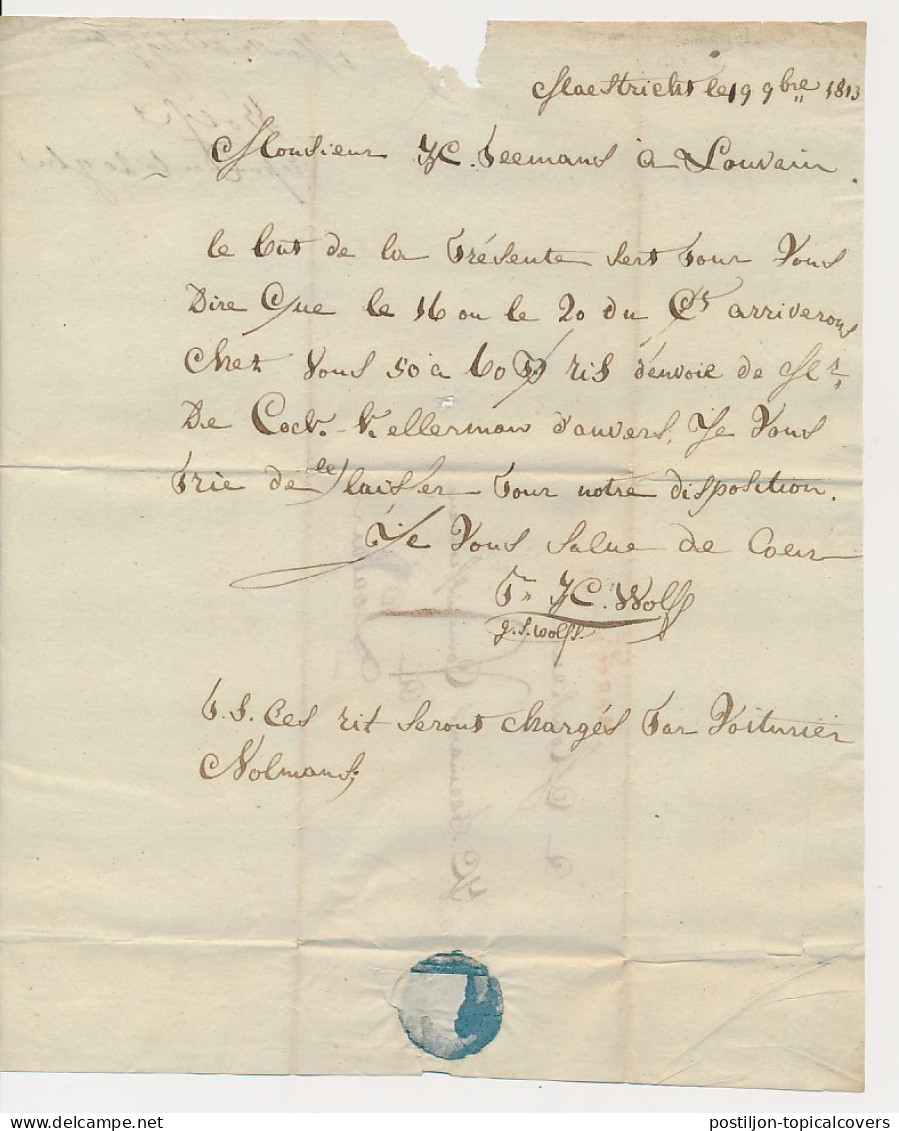 Maestricht le 19 9bre 1813
Monsieur JC. Seemans à Louvain
le but de la Présente sert Pour Vous
Dire Que le 16 ou le 20 du Ct arriverons
Chez Vous 50 a 60 ris d'envoie de Mr
De Cock. Kellerman d'anvers, Je Vous
Prie de le laisser Pour notre disposition.
Je Vous salue de Coeur
Pr JC. Wolff
J. S. Wolff.
P.S. Ces rit seront chargés Par Voiturier
Nolmans;
postiljon-topicalcovers